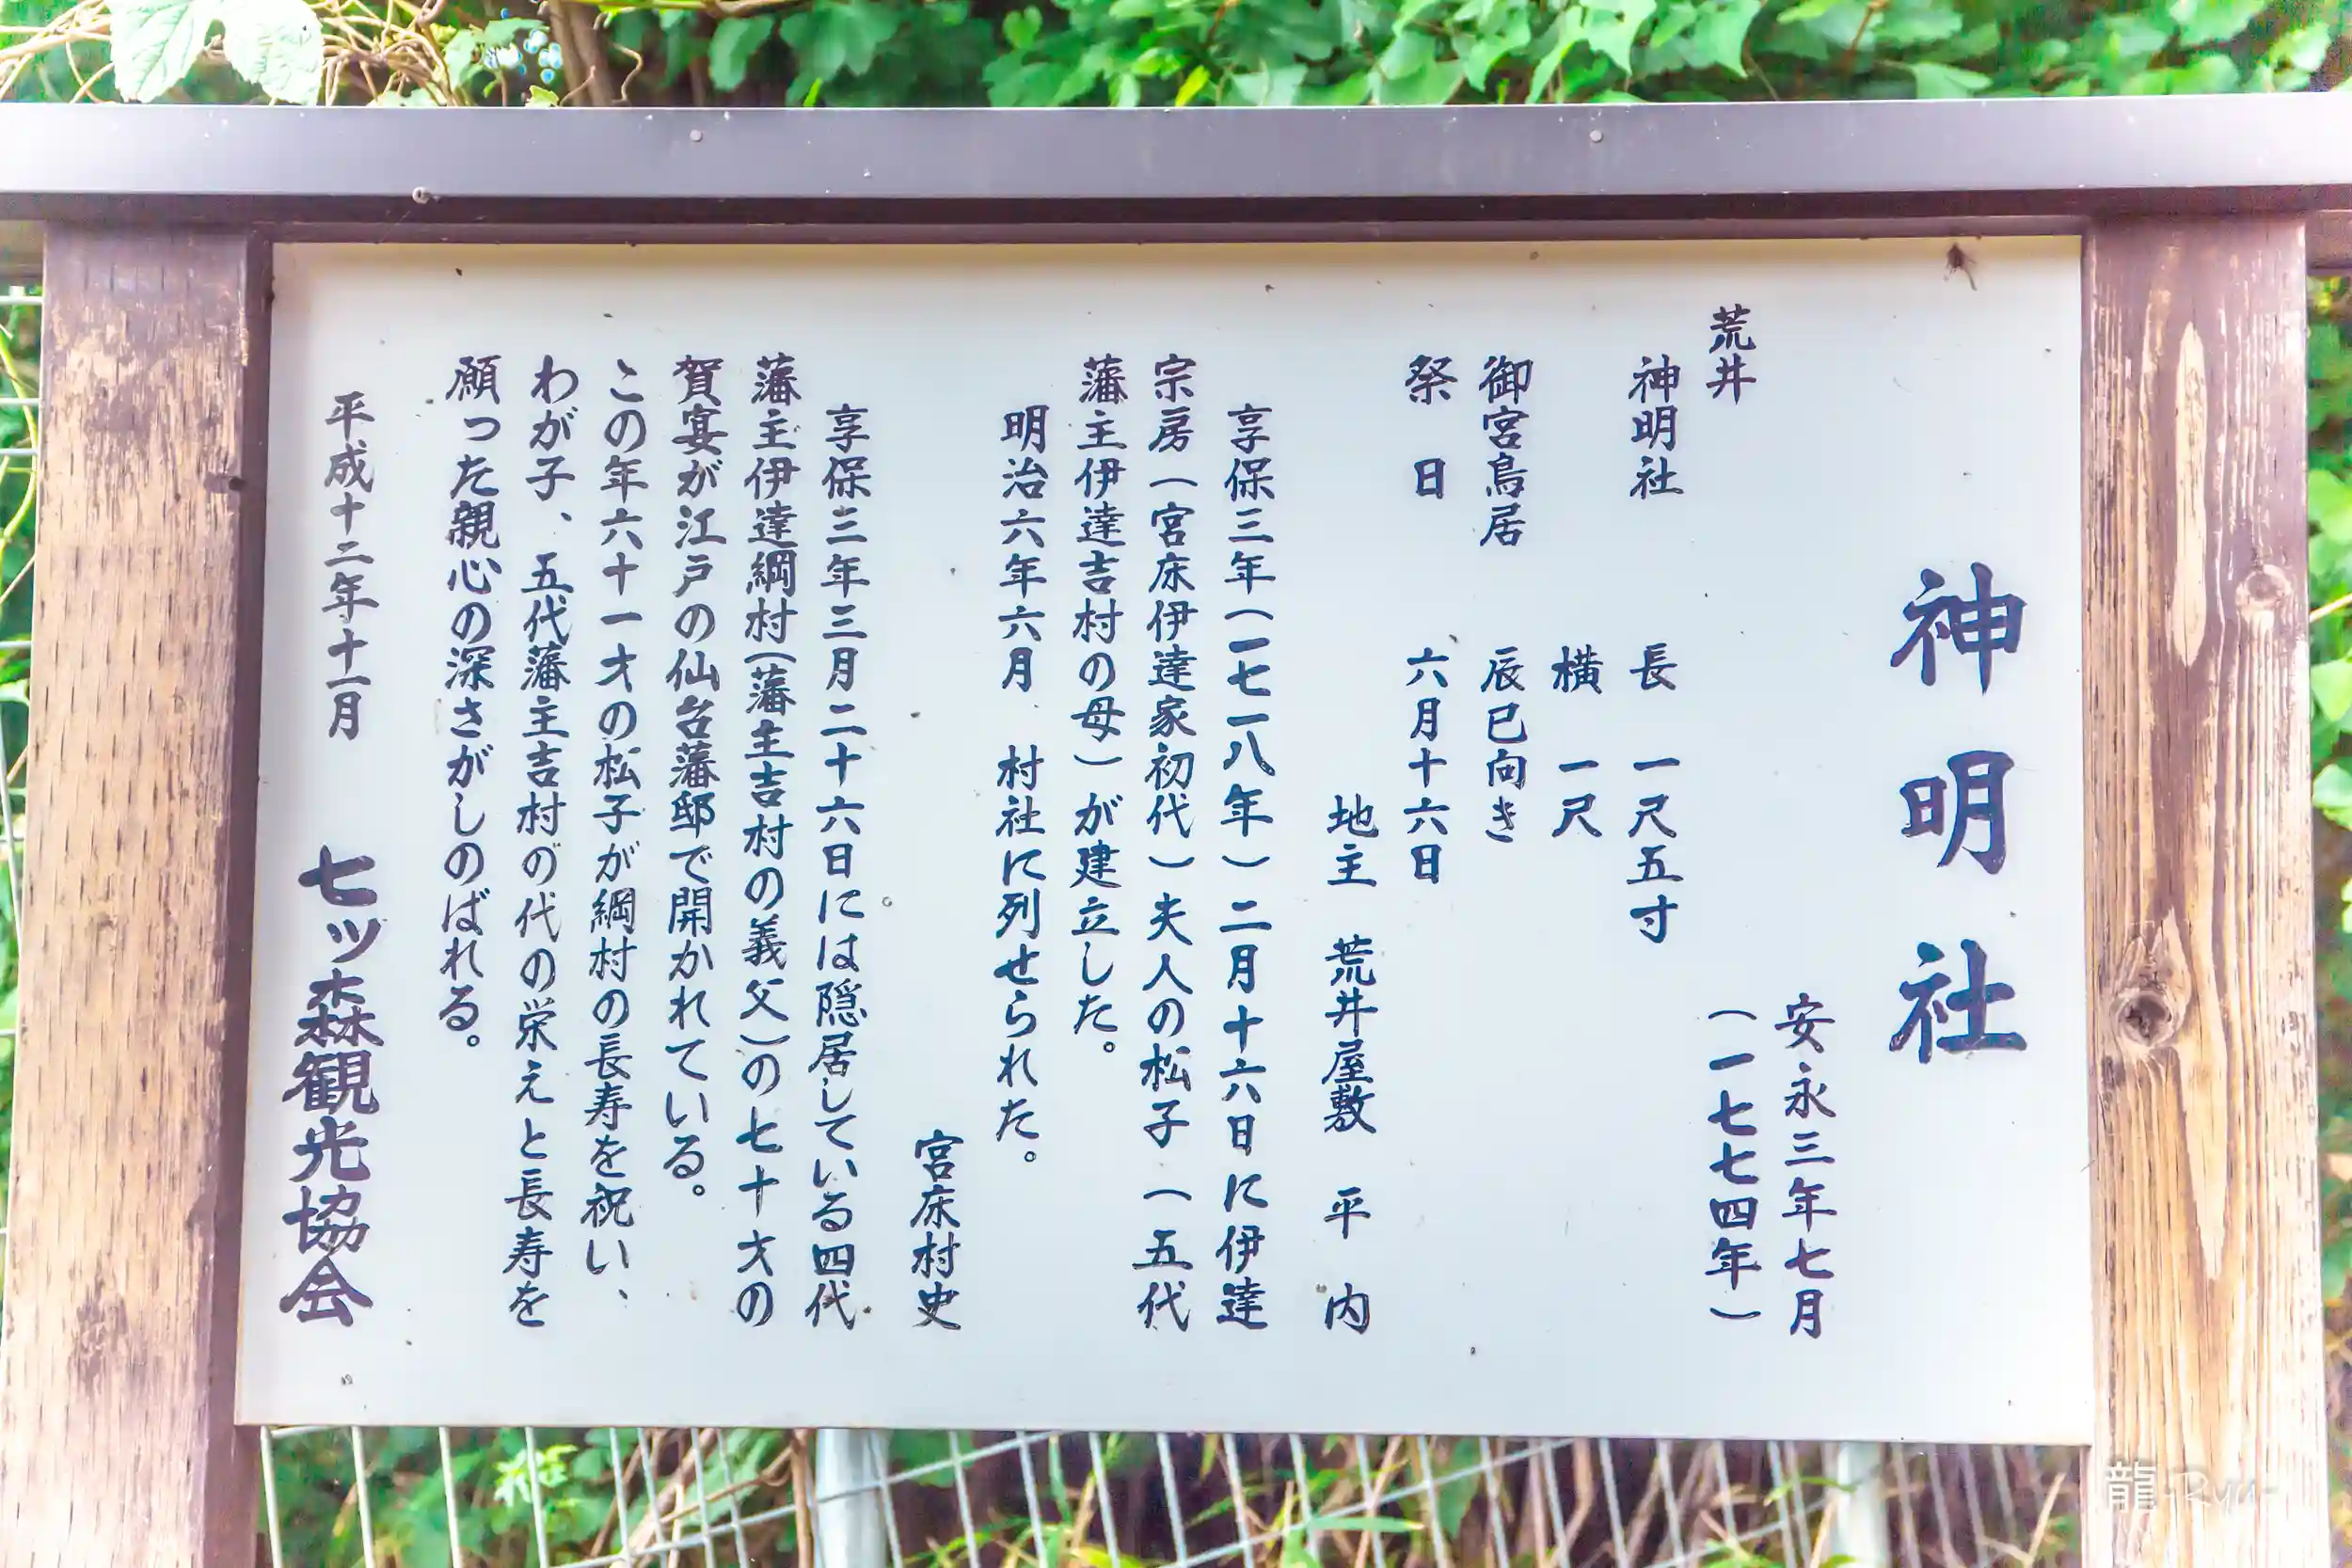 神明社
安永三年七月
荒井　(一七七四年)
神明社　長　一尺五寸
横　一尺
御宮鳥居　辰巳向き
祭　日　六月十六日
地主　荒井屋敷　平　内
享保三年(一七一八年)二月十六日に伊達
宗房(宮床伊達家初代)夫人の松子(五代
藩主伊達吉村の母)が建立した。
明治六年六月　村社に列せられた。
宮床村史
享保三年三月二十六日には隠居している四代
藩主伊達綱村(藩主吉村の義父)の七十才の
賀宴が江戸の仙台藩邸で開かれている。
この年六十一才の松子が綱村の長寿を祝い、
わが子、五代藩主吉村の代の栄えと長寿を
願った親心の深さがしのばれる。
平成十二年十一月　七ツ森観光協会
龍-Ryu-